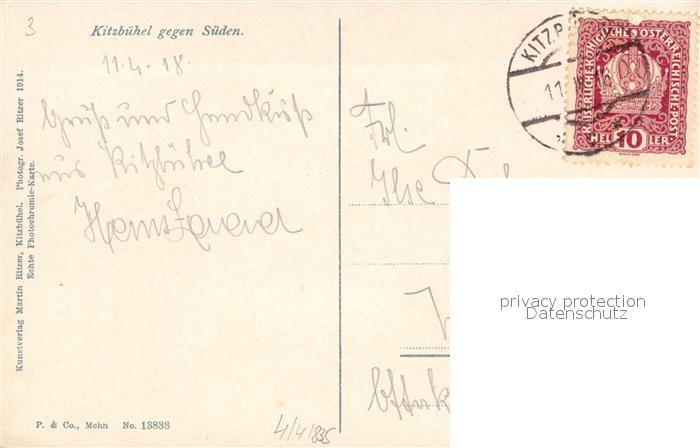 3
Kitzbühel gegen Süden.
11.4.18.
Gruß und Handkuß
aus Kitzbühel
Kunstverlag Martin Ritzer, Kitzbühel. Photogr. Josef Ritzer 1914.
Echte Photochromie-Karte.
P. & Co., Mchn No. 13838
4/4/835
KAISERLICHE·KÖNIGLICHE·ÖSTERREICHISCHE·POST
HELLER
10
11
Frl.
Ilse
privacy protection
Datenschutz